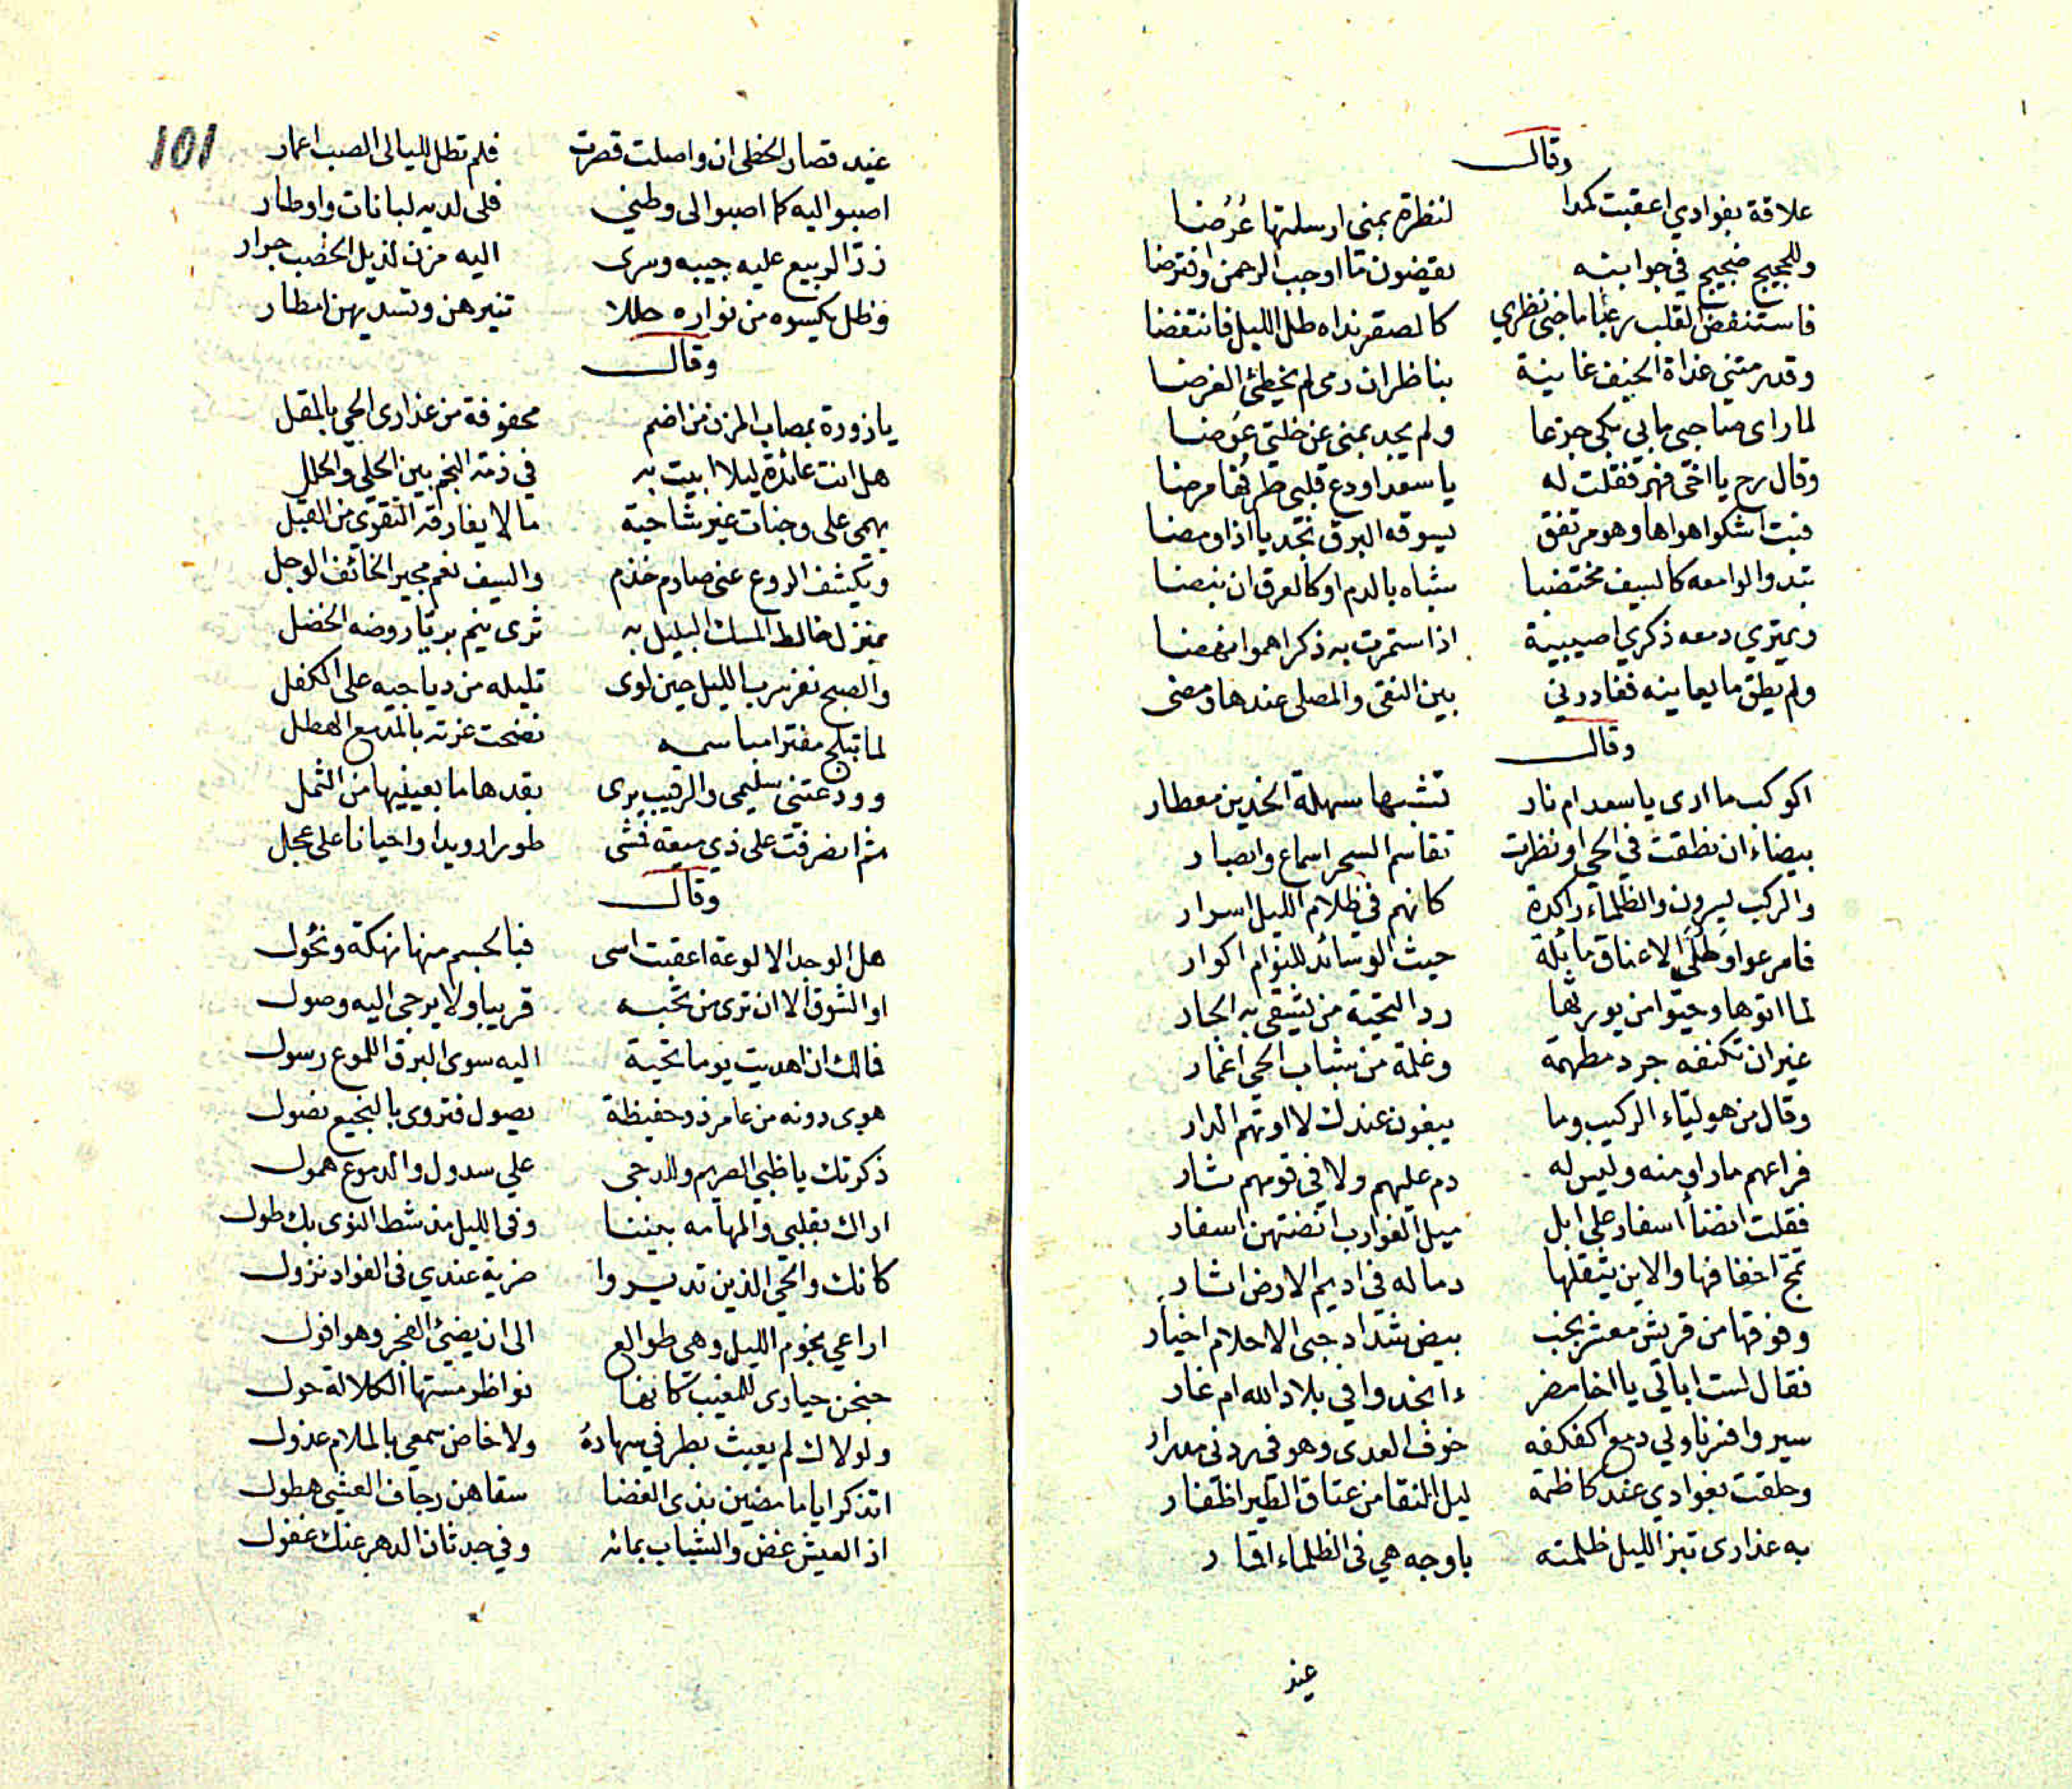 وقال
علاقة بفوادي اعقبت كمدا لنظرة بمنى ارسلتها عُرُضا
وللحجيج ضجيج في جوانبه يقضون ما اوجب الرحمن وافترضا
فاستنفض القلب رعبا ما جنى نظري كالصقر نداه طل الليل فانتفضا
وقد رمتني غداة الخيف غانية بناظر ان رمى لم يخطئ الغرضا
لما راى صاحبي ما بي بكى جزعا ولم يجد بمنى عن خلتي عوضا
وقال رح يا اخي فهر فقلت له يا سعد اودع قلبي طرفها مرضا
فبت اشكوا هواها وهو مرتفق يسوقه البرق نجديا اذا ومضا
تبدوا لوامعه كالسيف مختضبا شباه بالدم او كالعرق ان نبضا
ويمتري دمعه ذكرى اصيبية اذا ستمرت به ذكراهموا نهضا
ولم يطق ما يعاينه فغادرني بين النقى والمصلى عندها ومضى
وقال
اكوكب ما ارى يا سعد ام نار تشبها سهلة الخدين معطار
بيضاء ان نطقت في الحي او نظرت تقاسم السحر اسماع وابصار
والركب يسرون والظلماء راكدة كانهم في ظلام الليل اسرار
فاسرعوا وطلى الاعناق مائلة حيث الوسائد للنوام اكوار
لما اتوها وحيوا من يورثها رد التحية من يشقى به الجار
غيران تكنفه جرد مطهمة وغلمة من شباب الحي اغمار
وقال من هوليّاء الركيب وما يبغون عندك لا اوتهم الدار
فراعهم ما راو منه وليس له دم عليهم ولا في قومهم ثار
فقلت انضاء اسفار على ابل ميل الغوارب انضتهن اسفار
تمج اخفافها والاين يثقلها دما له في اديم الارض اثار
وفوقها من قريش معشر نجب بيض شداد حبى الاحلام اخيار
فقال لست ابالي يا اخا مضر ءانجدوا في بلاد الله ام غار
سيروا فسرنا ولي دمع اكفكفه خوف العدى وهو في ردني مدرار
وحلقت بفوادي عند كاظمة ليل النقا من عتاق الطير اظفار
به عذارى تبز الليل ظلمته باوجه هي في الظلماء اقمار
غيد
101
غيد قصار الخطى ان واصلت قصرت فلم تطل لليالي الصب اعمار
اصبوا اليه كما اصبوا الى وطني فلي لديه لبانات واوطار
زر الربيع عليه جيبه وسرى اليه مزن لذيل الخصب جرار
وظل يكسوه من نواره حللا تنيرهن وتسديهن امطار
وقال
يا زورة بمصاب المزن من اضم محفوفة من عذارى الحي بالمقل
هل انت عائدة ليلا ابيت به في ذمة النجم بين الحلي والحلل
يهمي على وجنات غير شاحبة ما لا يفارقه التقوى من القبل
ويكشف الروع عني صارم خذم والسيف نعم مجير الخائف الوجل
بمنزل خالط المسك البليل به ثرى ينم بريا روضه الخضل
والصبح نفر سرب الليل حين لوى تليله من دياجيه على الكفل
لما تبلج مفترا مباسمه نضحت غرته بالمدمع الهطل
وودعتني سليمى والرقيب يرى بقدها ما بعينيها من الثمل
ثم انصرفت على ذي ميعة فمشى طورا رويدا واحيانا على عجل
وقال
هل الوجد الا لوعة اعقبت اسى فبالجسم منها نهكة ونُحُول
او الشوق الا ان ترى من تحبه قريبا ولا يرجى اليه وصول
فمالك ان اهديت يوما تحية اليه سوى البرق اللموع رسول
هوى دونه من عامر ذو حفيظة يصول فتروى بالنجيع نصول
ذكرتك يا ظبي الصريم وللدجى علي سدول والدموع همول
اراك بقلبي والمهامه بيننا وفي الليل مذ شط النوى بك طول
كانك والحي الذين تديروا ضرية عندي في الفواد نزول
اراعي نجوم الليل وهي طوالع الى ان يضيئ الفجر وهو افول
جنحن حيارى للمغيب كانها نواظر مستها الكلالة حول
ولولاك لم يعبث بطرفي سهادهُ ولا خاض سمعي بالملام عذول
اتذكر اياما مضين بذي الغضا سقاهن رجاف العشي هطول
اذ العيش غض والشباب بمائه وفي حدثان الدهر عنك غفول